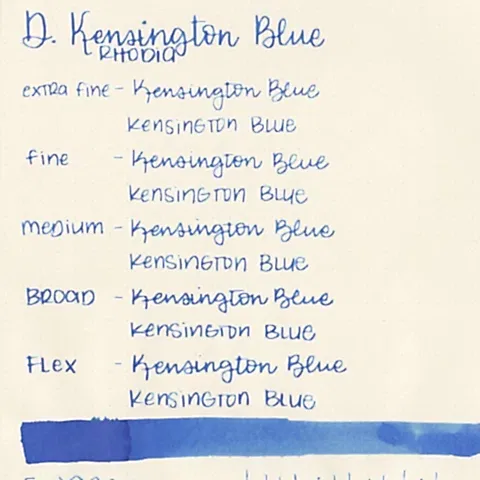 D. Kensington Blue
RHODIA
extra fine - Kensington Blue
KENSINGTON BLUE
fine - Kensington Blue
KENSINGTON BLUE
medium - Kensington Blue
KENSINGTON BLUE
BROAD - Kensington Blue
KENSINGTON BLUE
FLEX - Kensington Blue
KENSINGTON BLUE